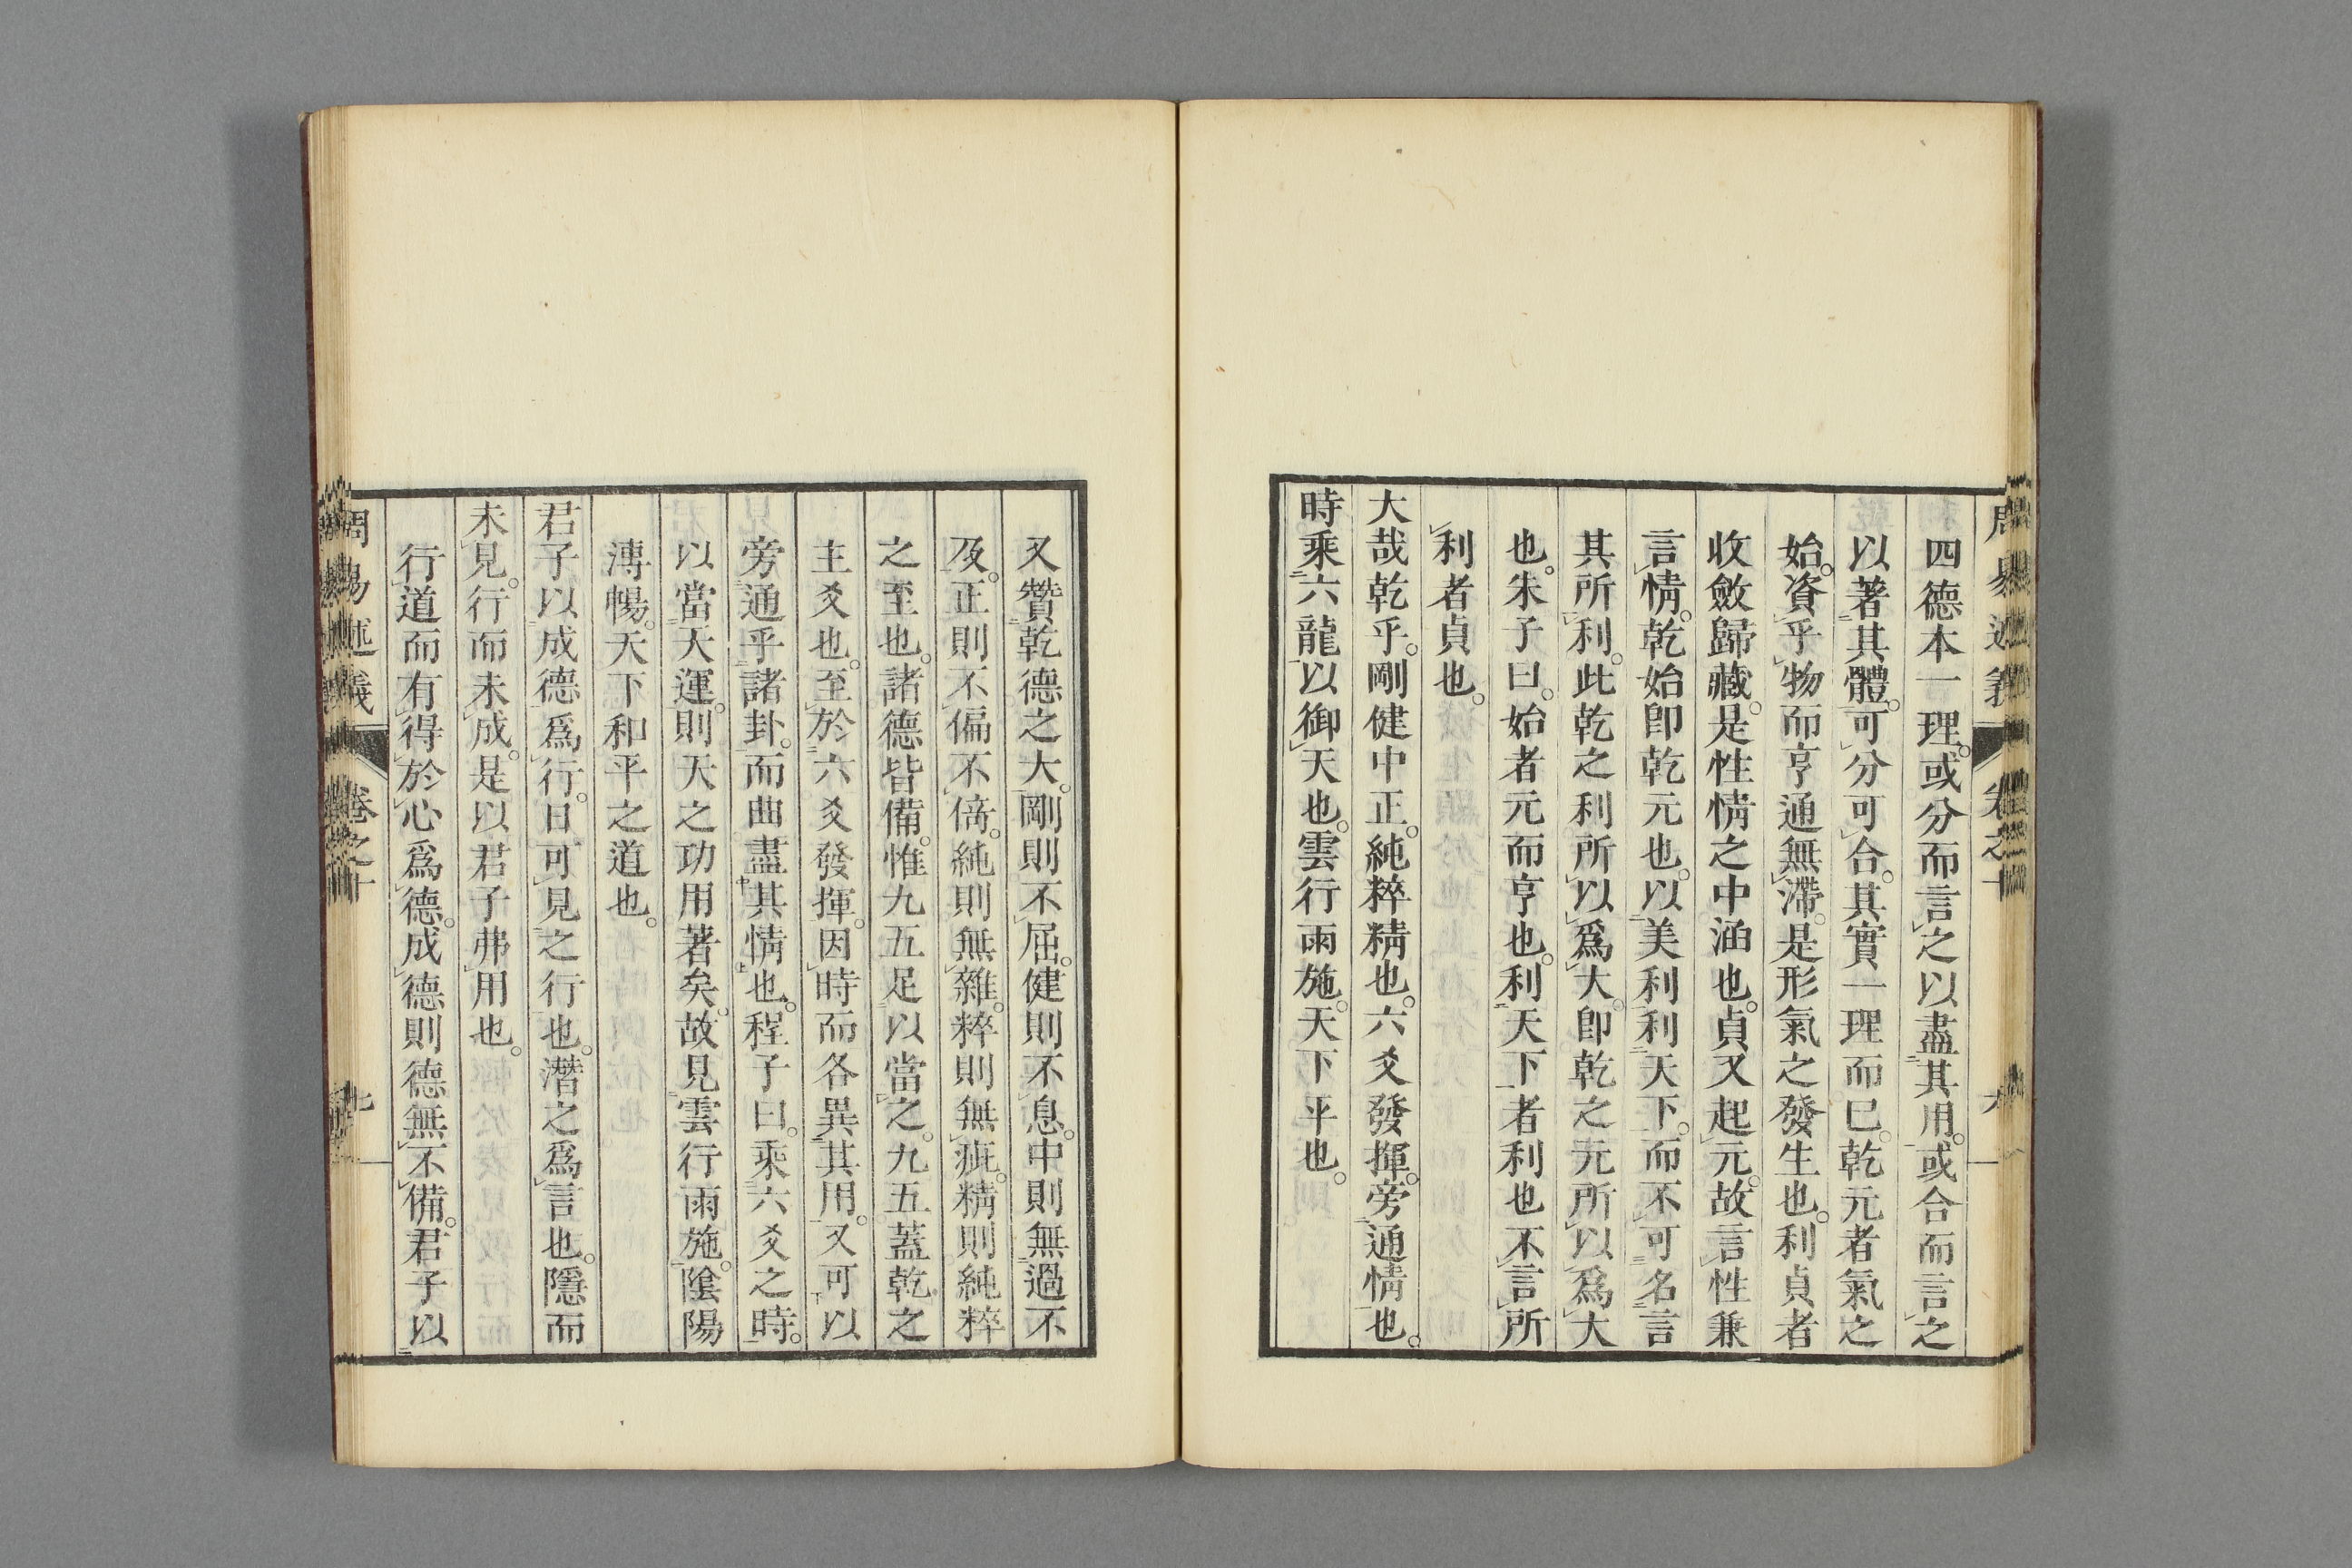 周易述義 卷之十 六
四德本一理。或分而言之以盡其用。或合而言之
以著其體。可分可合。其實一理而已。乾元者氣之
始。資乎物而亨通無滯。是形氣之發生也。利貞者
收斂歸藏。是性情之中涵也。貞又起元。故言性兼
言情。乾始卽乾元也。以美利利天下。而不可名言
其所利。此乾之利所以爲大。卽乾之元所以爲大
也。朱子曰。始者元而亨也。利天下者利也不言所
利者貞也。
大哉乾乎。剛健中正。純粹精也。六爻發揮。旁通情也。
時乘六龍以御天也。雲行雨施。天下平也。
又贊乾德之大。剛則不屈。健則不息。中則無過不
及。正則不偏不倚。純則無雜。粹則無疵。精則純粹
之至也。諸德皆備。惟九五足以當之。九五蓋乾之
主爻也。至於六爻發揮。因時而各異其用。又可以
旁通乎諸卦。而曲盡其情也。程子曰。乘六爻之時。
以當天運。則天之功用著矣。故見雲行雨施。陰陽
溥暢。天下和平之道也。
君子以成德爲行。日可見之行也。潛之爲言也。隱而
未見。行而未成。是以君子弗用也。
行道而有得於心爲德。成德則德無不備。君子以
周易述義 卷之十 七